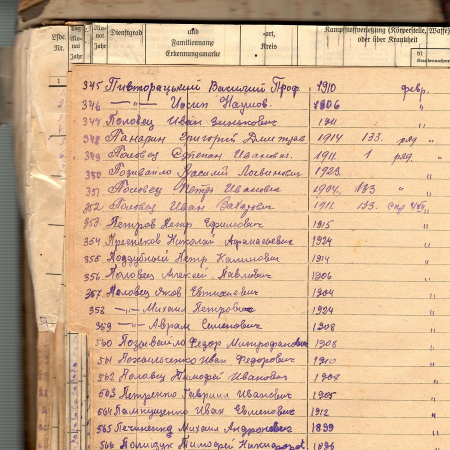 Lfde. Nr.
Mo- nat Jahr
Dienstgrad
und
Familienname
Erkennungsmarke
ort,
Kreis
Kampfstoffverletzung (Körperstelle, Waffe)
oder über Krankheit
1
345 Пивторацький Василий Проф. 1910 февр.
346 —"— Иосип Наумов. 1906 "
347 Половец Иван Зинькович 1911 "
348 Панарин Григорий Дмитров 1914 133. ряд "
349 Половец Степан Иванович. 1911. 1 ряд. "
350 Василий Логвинович 1923.
351 Половец Петро Иванович 1904, 133 " "
352 Половец Иван 1911. 133.
353 Петров Петр Ефимович 1915 "
354 Николай Афанасьевич 1924 "
355 Поддубный Петр 1914 "
356 Половец Алексей Павлович 1906 "
357 Половец Яков Евтихиевич 1904 "
358 —"— Михаил Петрович 1924 "
359 —"— Аврам Семенович 1908 "
560 Федор Митрофанович 1908 "
561 Иван Федорович 1910 "
562 Половец Тимофей Иванович 1908 "
563 Петренко Гавриил Иванович 1905 "
564 Иван Евменович 1912 "
565 Михаил Андронович 1899 "
566 Полищук Тимофей 1896 "